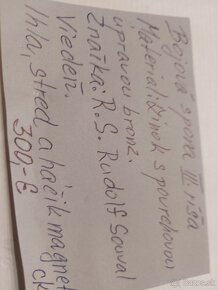 Bojová spona III. ríša
Materiál: zinok s povrchovou
úpravou bronz.
Značka: R.S. Rudolf Souval
Viedeň.
Ihla, stred a háčik magnet
ck
300,-€